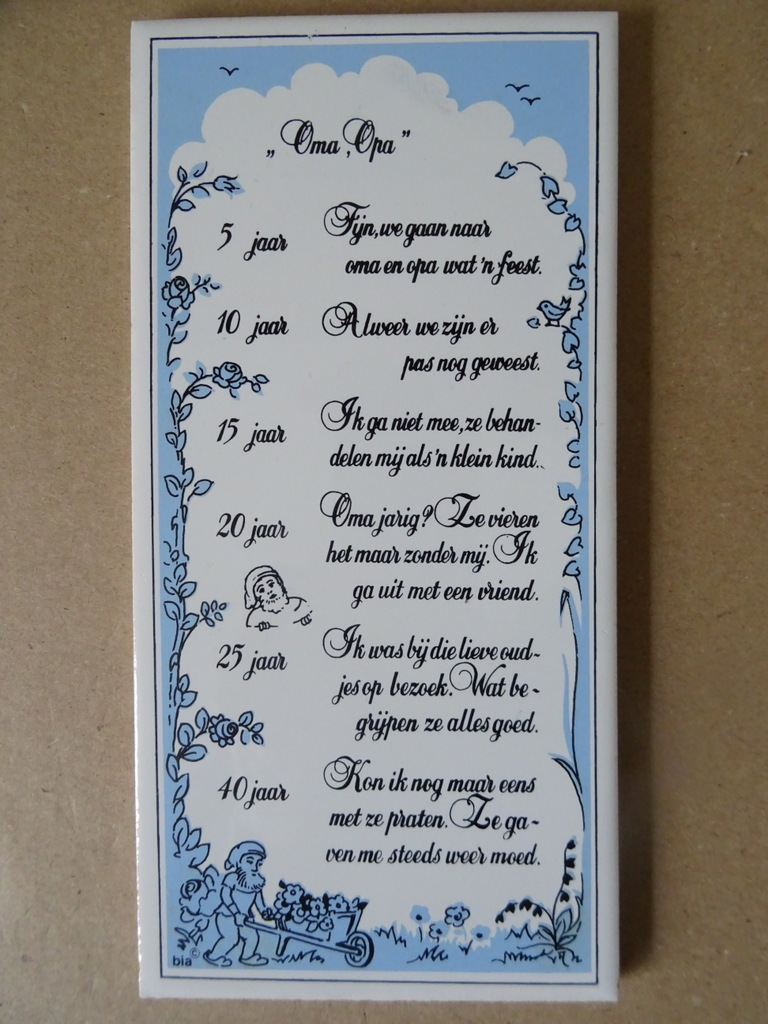 „Oma, Opa”
5 jaar Fijn, we gaan naar
oma en opa wat 'n feest.
10 jaar Alweer we zijn er
pas nog geweest.
15 jaar Ik ga niet mee, ze behan-
delen mij als 'n klein kind..
20 jaar Oma jarig? Ze vieren
het maar zonder mij. Ik
ga uit met een vriend.
25 jaar Ik was bij die lieve oud-
jes op bezoek. Wat be-
grijpen ze alles goed.
40 jaar Kon ik nog maar eens
met ze praten. Ze ga-
ven me steeds weer moed.
bia©